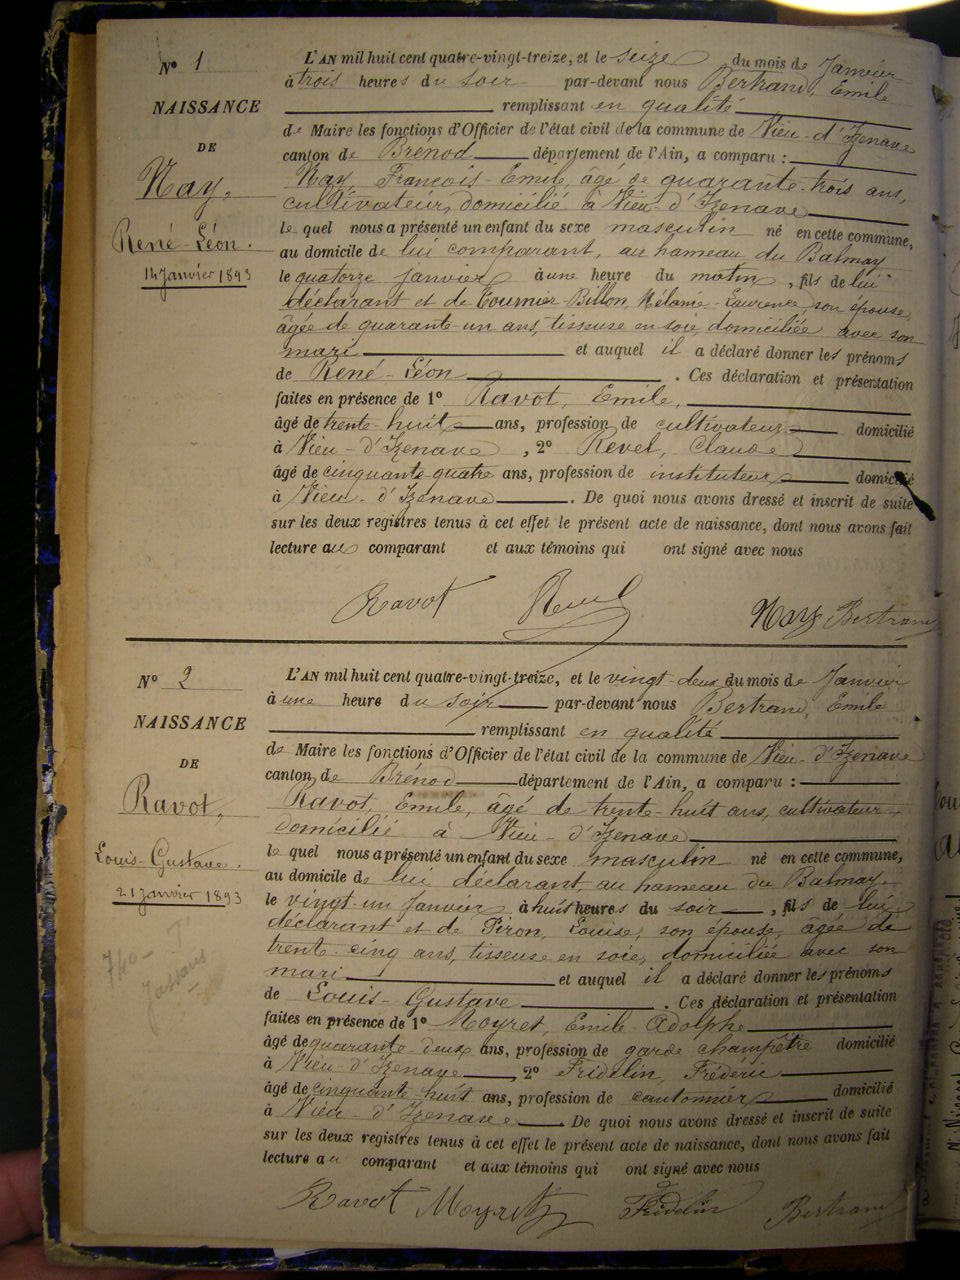 N° 1
NAISSANCE
DE
Nay,
René-Léon.
14 Janvier 1893
L'AN mil huit cent quatre-vingt-treize, et le seize du mois de Janvier
à trois heures du soir par-devant nous Bertrand, Emile
remplissant en qualité
de Maire les fonctions d'Officier de l'état civil de la commune de Vieu-d'Izenave
canton de Brénod département de l'Ain, a comparu :
Nay, François-Emile, âgé de quarante-trois ans,
cultivateur, domicilié à Vieu-d'Izenave
le quel nous a présenté un enfant du sexe masculin né en cette commune,
au domicile de lui comparant, au hameau du Balmay
le quatorze Janvier à une heure du matin, fils de lui
déclarant et de Tournier-Billon, Mélanie-Laurence, son épouse,
âgée de quarante-un ans, tisseuse en soie, domiciliée avec son
mari et auquel il a déclaré donner les prénoms
de René-Léon. Ces déclaration et présentation
faites en présence de 1° Ravot, Emile,
âgé de trente-huit ans, profession de cultivateur domicilié
à Vieu-d'Izenave, 2° Revel, Claude
âgé de cinquante-quatre ans, profession de instituteur domicilié
à Vieu-d'Izenave. De quoi nous avons dressé et inscrit de suite
sur les deux registres tenus à cet effet le présent acte de naissance, dont nous avons fait
lecture au comparant et aux témoins qui ont signé avec nous
Ravot Revel Nay Bertrand
N° 2
NAISSANCE
DE
Ravot,
Louis-Gustave.
21 Janvier 1893
L'AN mil huit cent quatre-vingt-treize, et le vingt-deux du mois de Janvier
à une heure du soir par-devant nous Bertrand, Emile
remplissant en qualité
de Maire les fonctions d'Officier de l'état civil de la commune de Vieu-d'Izenave
canton de Brénod département de l'Ain, a comparu :
Ravot, Emile, âgé de trente-huit ans, cultivateur
domicilié à Vieu-d'Izenave
le quel nous a présenté un enfant du sexe masculin né en cette commune,
au domicile de lui déclarant, au hameau du Balmay
le vingt-un Janvier à huit heures du soir, fils de lui
déclarant et de Piron, Louise, son épouse, âgée de
trente-cinq ans, tisseuse en soie, domiciliée avec son
mari et auquel il a déclaré donner les prénoms
de Louis-Gustave. Ces déclaration et présentation
faites en présence de 1° Moyret, Emile-Adolphe
âgé de quarante-deux ans, profession de garde champêtre domicilié
à Vieu-d'Izenave, 2° Fridelin, Frédéric
âgé de cinquante-huit ans, profession de cantonnier domicilié
à Vieu-d'Izenave. De quoi nous avons dressé et inscrit de suite
sur les deux registres tenus à cet effet le présent acte de naissance, dont nous avons fait
lecture au comparant et aux témoins qui ont signé avec nous
Ravot Moyret Fridelin Bertrand